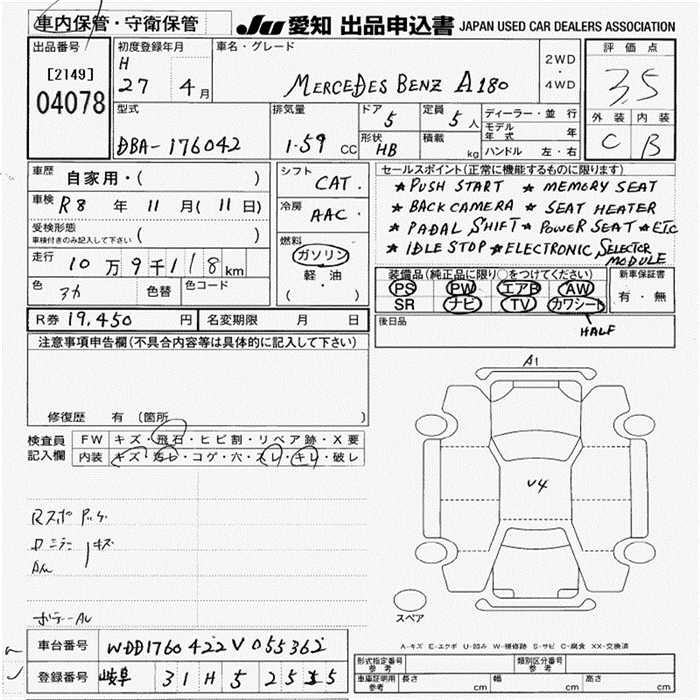 車内保管・守衛保管
JU 愛知 出品申込書 JAPAN USED CAR DEALERS ASSOCIATION
出品番号
[2149]
04078
初度登録年月
H
27 4月
車名・グレード
MERCEDES BENZ A180
2WD
・
4WD
評価点
3.5
外装 内装
C B
型式
DBA-176042
排気量
1.59 CC
ドア
5
形状
HB
定員
5人
積載
kg
ディーラー・並行
モデル年式 年
ハンドル 左・右
車歴
自家用・( )
車検 R8年 11月(11日)
受検形態
車検付きのみ記入して下さい ( )
走行 10万9千118km
色 色替 色コード
シフト
CAT.
冷房
AAC.
燃料
ガソリン
軽・油
( ・ )
R券 19,450円 名変期限 月 日
セールスポイント(正常に機能するものに限ります)
★ PUSH START ★ MEMORY SEAT
★ BACK CAMERA ★ SEAT HEATER
★ PADAL SHIFT ★ POWER SEAT ★ ETC
★ IDLE STOP ★ ELECTRONIC SELECTOR MODULE
装備品(純正品に限り○をつけてください)
PS PW エアB AW
SR ナビ TV カワシート
HALF
新車保証書
有・無
後日品
注意事項申告欄(不具合内容等は具体的に記入して下さい)
修復歴 有(箇所 )
検査員記入欄
FW キズ・飛石・ヒビ割・リペア跡・X要
内装 キズ・汚レ・コゲ・穴・スレ・キレ・破レ
A1
V4
スペア
A-キズ E-エクボ U-凹み W-補修跡 S-サビ C-腐食 XX-交換済
車台番号 WDD1760422V055362
登録番号 岐阜 31H52555
型式指定番号 参考
類別区分番号 参考
車庫証明用 参考 長さ cm 幅 cm 高さ cm